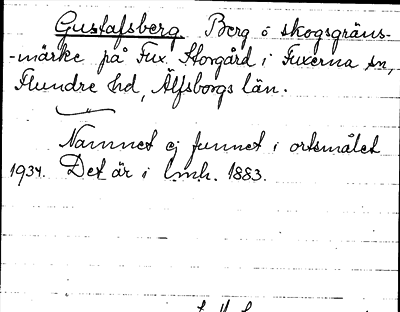 Gustafsberg Berg o skogsgräns-
-märke på Fux. Storgård i Fuxerna sn,
Flundre hd, Älfsborgs län.
Namnet ej funnet i ortsmålet
1934. Det är i lmh. 1883.